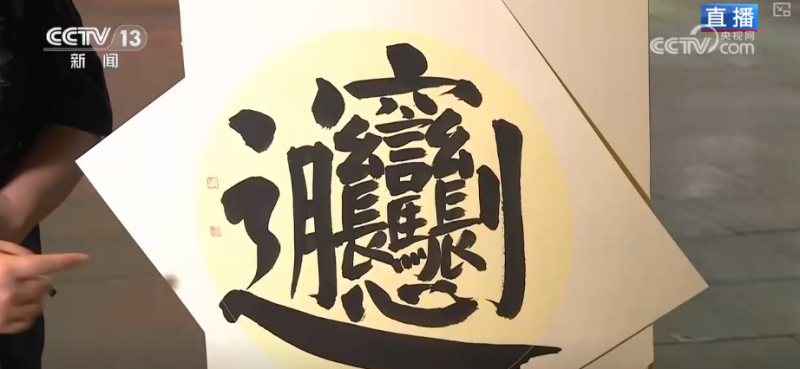 CCTV 13
新闻
直播
央视网
CCTV.com
𰻞